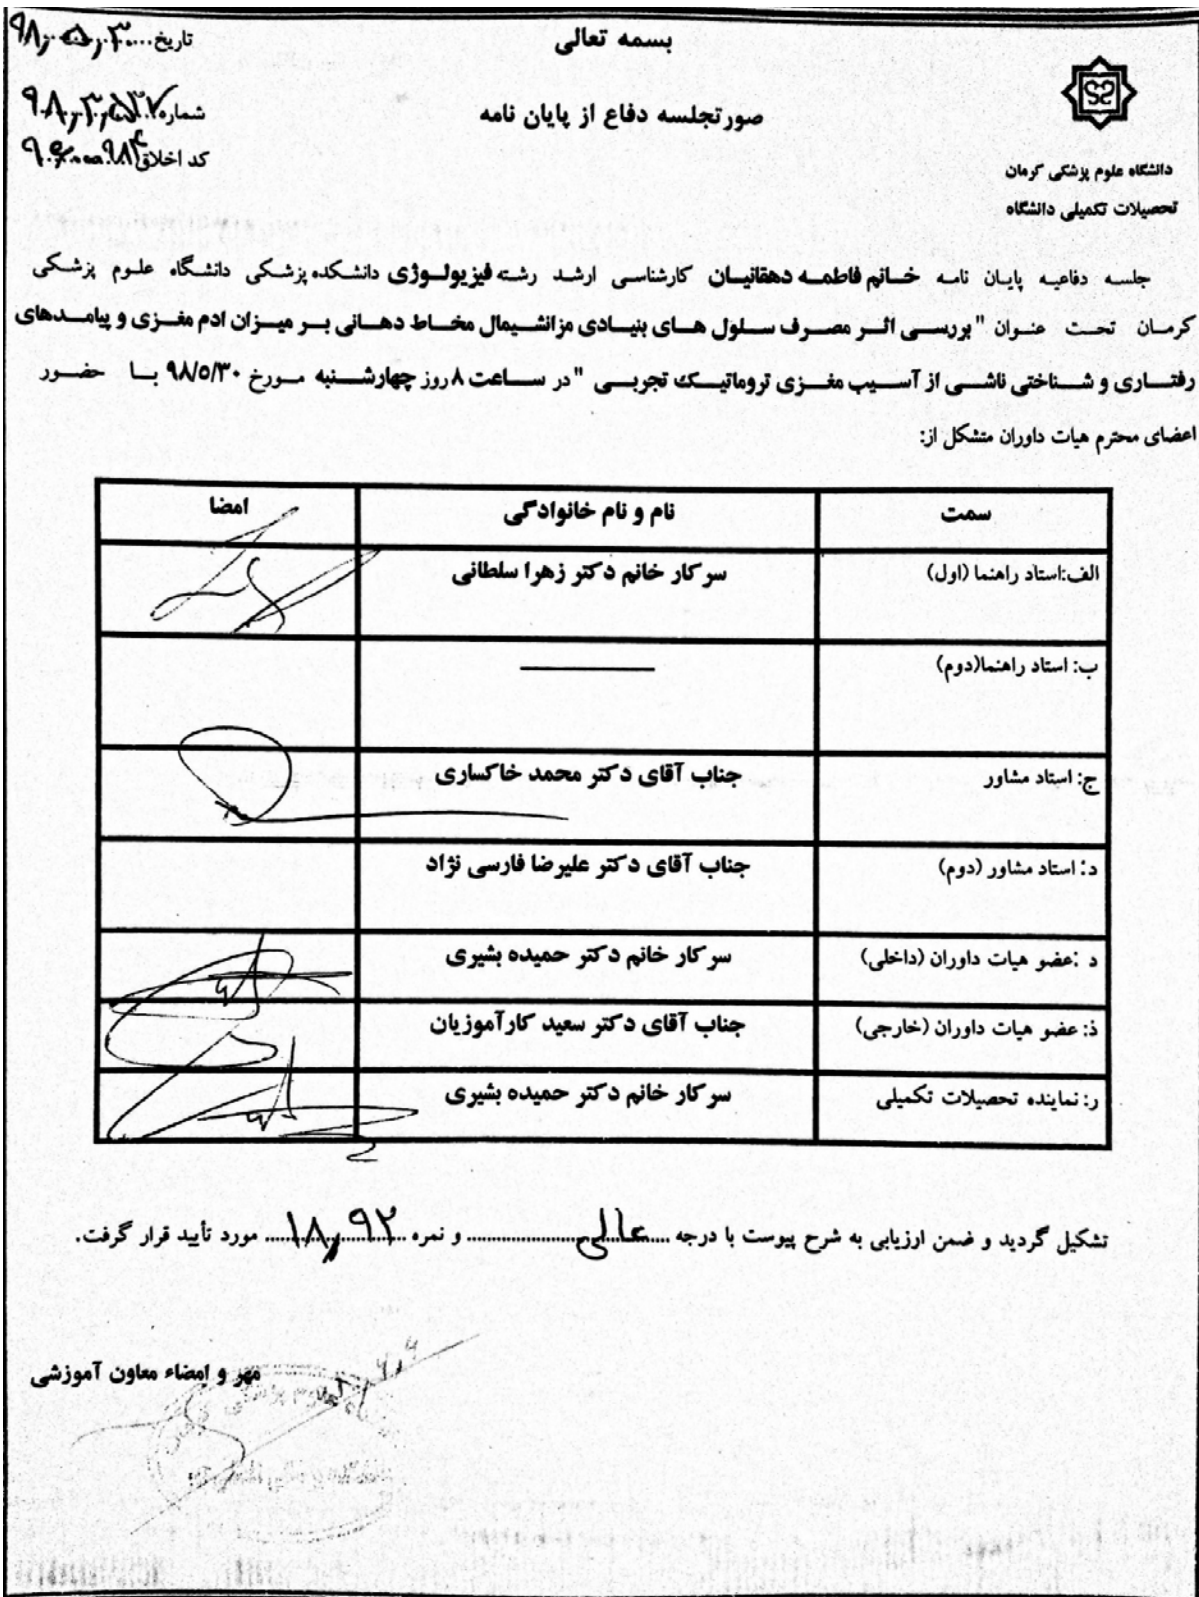 بسمه تعالی
تاریخ
صورتجلسه دفاع از پایان نامه
شماره
کد اخلاق
دانشگاه علوم پزشکی کرمان
تحصیلات تکمیلی دانشگاه
جلسه دفاعیه پایان نامه خانم فاطمه دهقانیان کارشناسی ارشد رشته فیزیولوژی دانشکده پزشکی دانشگاه علوم پزشکی
کرمان تحت عنوان "بررسی اثر مصرف سلول های بنیادی مزانشیمال مخاط دهانی بر میزان ادم مغزی و پیامدهای
رفتاری و شناختی ناشی از آسیب مغزی تروماتیک تجربی "در ساعت ۸ روز چهارشنبه مورخ ۹۸/۵/۳۰ با حضور
اعضای محترم هیات داوران متشکل از:
سمت نام و نام خانوادگی امضا
الف:استاد راهنما (اول) سرکار خانم دکتر زهرا سلطانی
ب: استاد راهنما(دوم)
ج: استاد مشاور جناب آقای دکتر محمد خاکساری
د: استاد مشاور (دوم) جناب آقای دکتر علیرضا فارسی نژاد
د :عضو هیات داوران (داخلی) سرکار خانم دکتر حمیده بشیری
ذ: عضو هیات داوران (خارجی) جناب آقای دکتر سعید کارآموزیان
ر: نماینده تحصیلات تکمیلی سرکار خانم دکتر حمیده بشیری
تشکیل گردید و ضمن ارزیابی به شرح پیوست با درجه عالی و نمره ۱۸,۹۲ مورد تأیید قرار گرفت.
مهر و امضاء معاون آموزشی